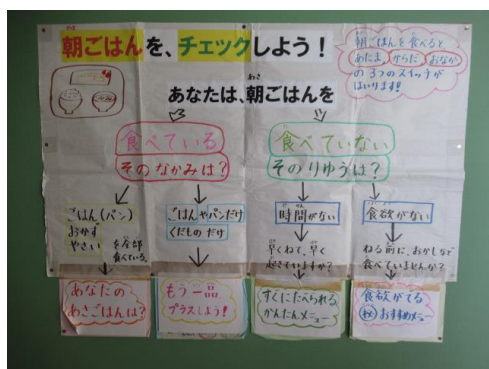 朝ごはんを、チェックしよう！
朝ごはんを食べると
あたま、からだ、おなか
の3つのスイッチが
はいります!!
あなたは、朝ごはんを
食べている
そのなかみは？
食べていない
そのりゆうは？
ごはん(パン)
おかず
やさい
を全部
食べている。
ごはんやパンだけ
くだものだけ
時間がない
早くねて、早く
起きていますか？
食欲がない
ねる前に、おかしなど
食べていませんか？
あなたの
あさごはんは？
もう一品
プラスしよう！
すぐにたべられる
かんたんメニュー
食欲がでる
㊙おすすめメニュー